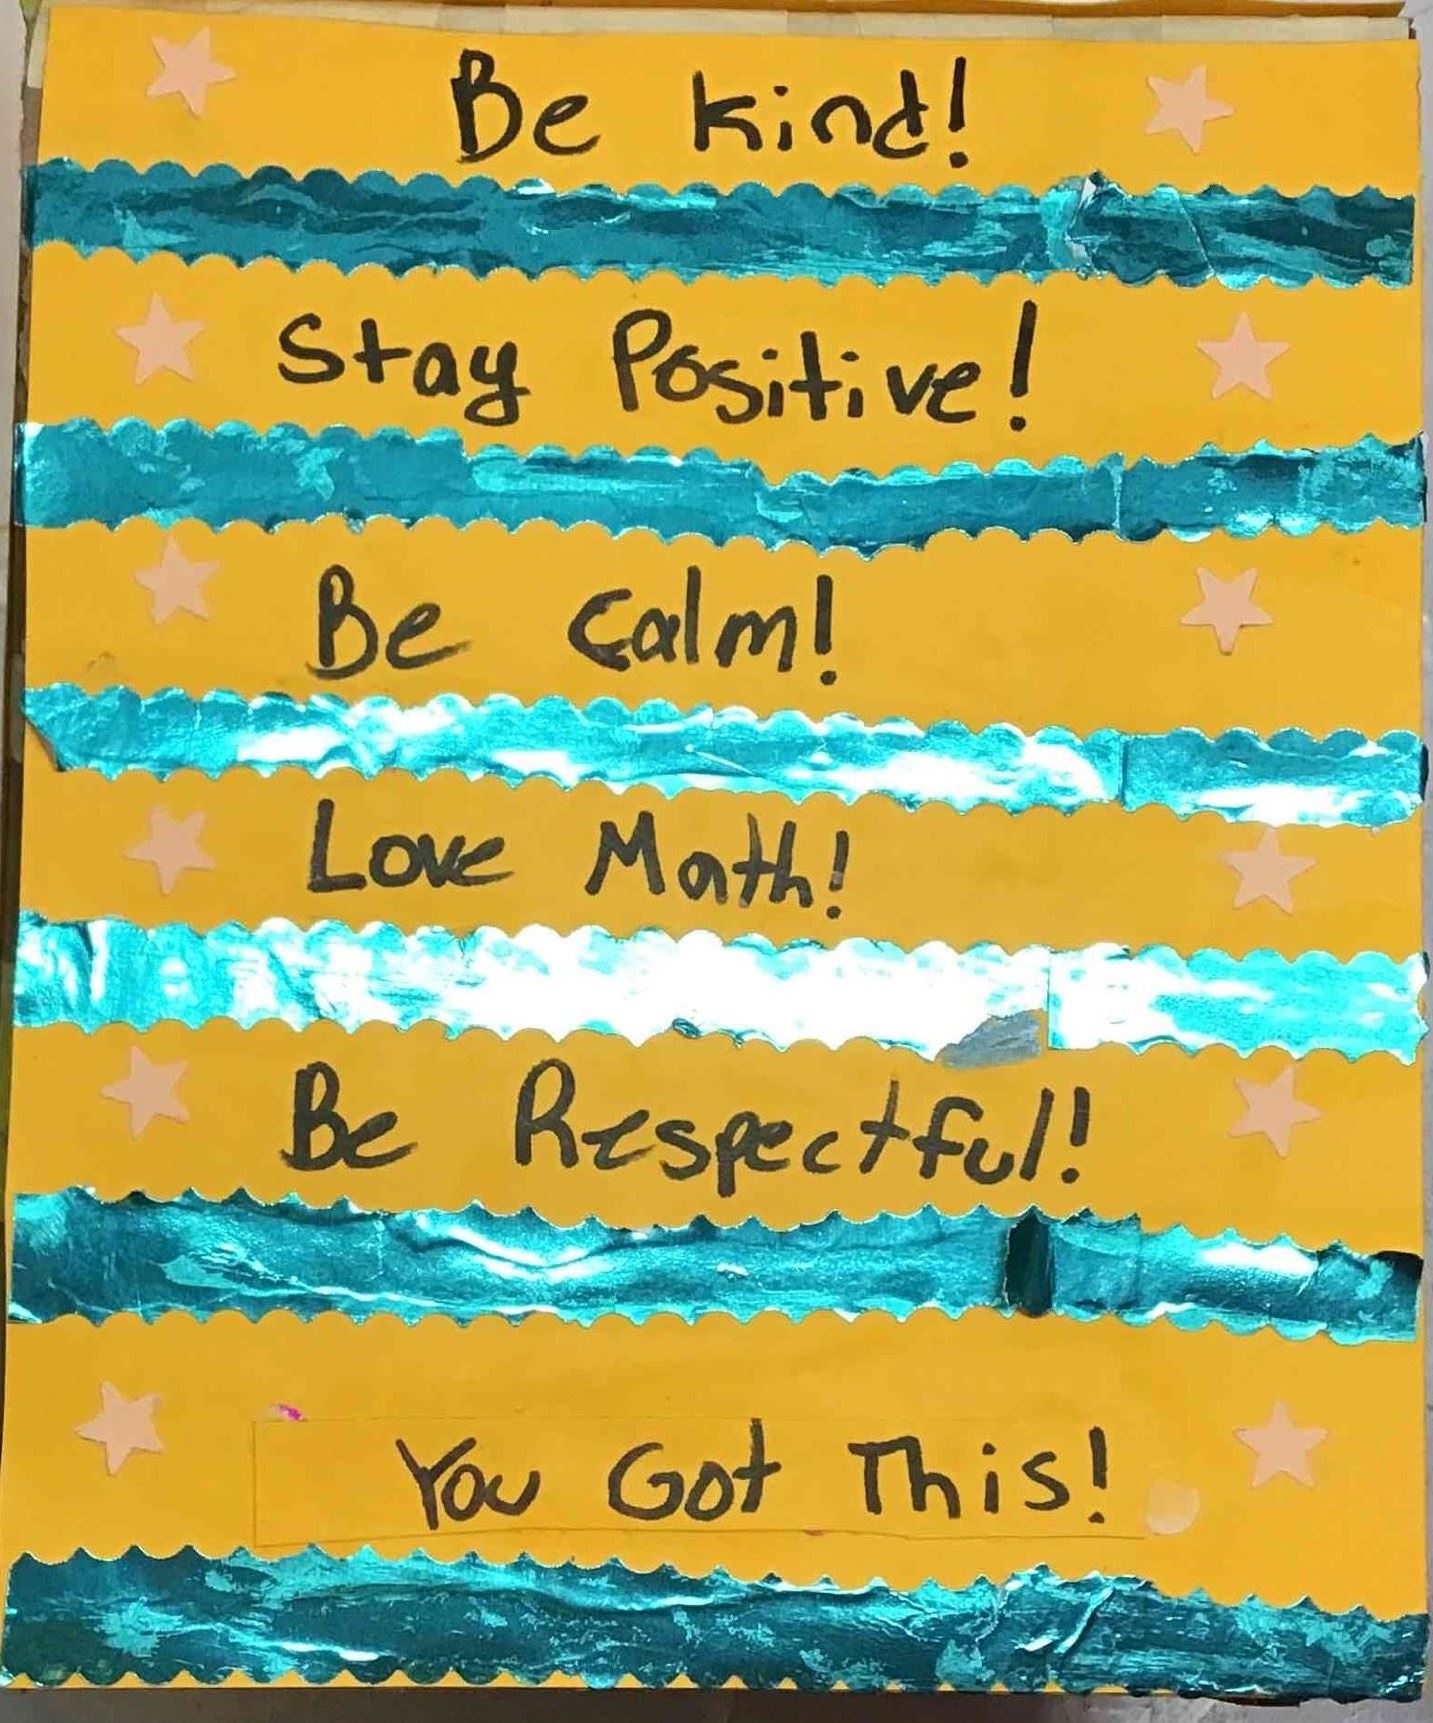 Be kind!
Stay Positive!
Be Calm!
Love Math!
Be Respectful!
You Got This!